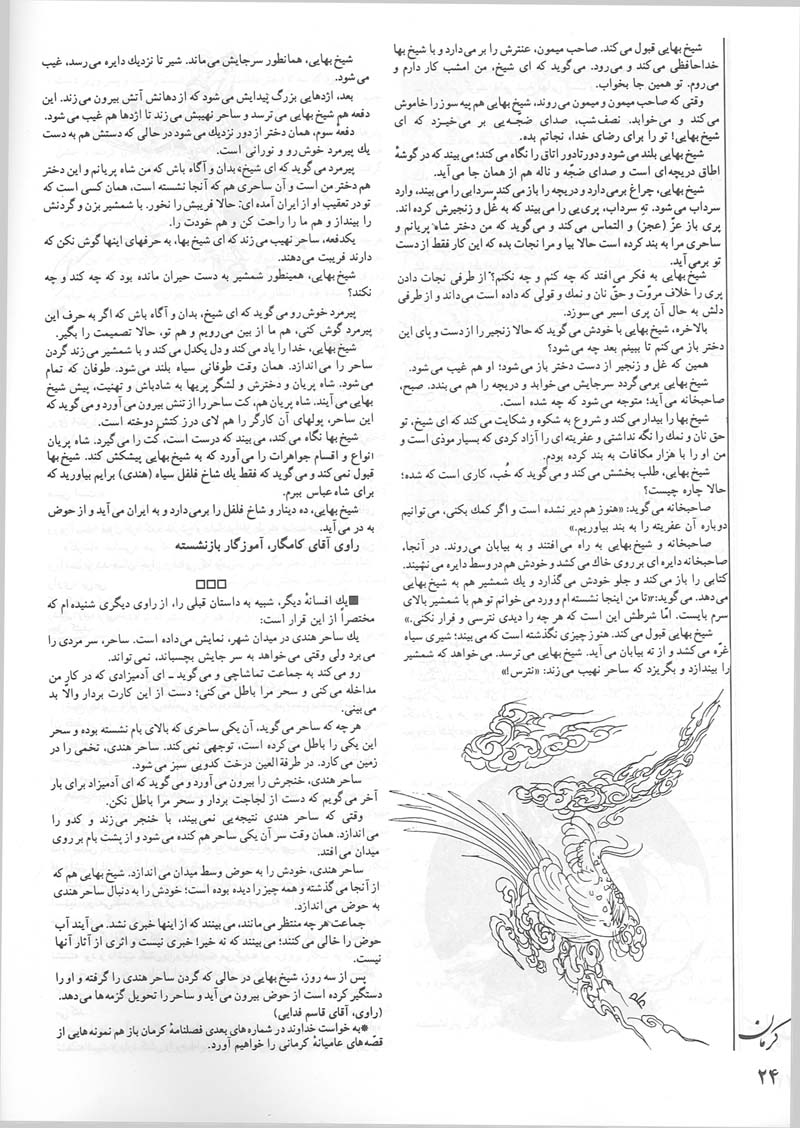 شیخ بهایی قبول می‌کند. صاحب میمون، عنترش را بر می‌دارد و با شیخ بها
خداحافظی می‌کند و می‌رود. می‌گوید که ای شیخ، من امشب کار دارم و
می‌روم. تو همین جا بخواب.
وقتی که صاحب میمون و میمون می‌روند، شیخ بهایی هم پیه سوز را خاموش
می‌کند و می‌خوابد. نصف‌شب، صدای ضجّه‌یی بر می‌خیزد که ای
شیخ بهایی! تو را برای رضای خدا، نجاتم بده.
شیخ بهایی بلند می‌شود و دورتادور اتاق را نگاه می‌کند؛ می‌بیند که در گوشهٔ
اطاق دریچه‌ای است و صدای ضجّه و ناله هم از همان جا می‌آید.
شیخ بهایی، چراغ برمی‌دارد و دریچه را باز می‌کند سردابی را می‌بیند، وارد
سرداب می‌شود. تهِ سرداب، پری‌یی را می‌بیند که به غُل و زنجیرش کرده اند.
پری باز عزّ (عجز) و التماس می‌کند و می‌گوید که من دختر شاه پریانم و
ساحری مرا به بند کرده است حالا بیا و مرا نجات بده که این کار فقط از دست
تو برمی‌آید.
شیخ بهایی به فکر می‌افتد که چه کنم و چه نکنم؟ از طرفی نجات دادن
پری را خلاف مروّت و حقّ نان و نمك و قولی که داده است می‌داند و از طرفی
دلش به حال آن پری اسیر می‌سوزد.
بالاخره، شیخ بهایی با خودش می‌گوید که حالا زنجیر را از دست و پای این
دختر باز می‌کنم تا ببینم بعد چه می‌شود؟
همین که غل و زنجیر از دست دختر باز می‌شود؛ او هم غیب می‌شود.
شیخ بهایی برمی‌گردد سرجایش می‌خوابد و دریچه را هم می‌بندد. صبح،
صاحبخانه می‌آید؛ متوجه می‌شود که چه شده است.
شیخ بها را بیدار می‌کند و شروع به شکوه و شکایت می‌کند که ای شیخ، تو
حق نان و نمك را نگه نداشتی و عفریته ای را آزاد کردی که بسیار موذی است و
من او را با هزار مکافات به بند کرده بودم.
شیخ بهایی، طلب بخشش می‌کند و می‌گوید که خُب، کاری است که شده؛
حالا چاره چیست؟
صاحبخانه می‌گوید: «هنوز هم دیر نشده است و اگر کمك بکنی، می‌توانیم
دوباره آن عفریته را به بند بیاوریم.»
صاحبخانه و شیخ بهایی به راه می‌افتند و به بیابان می‌روند. در آنجا،
صاحبخانه دایره ای بر روی خاك می‌کشد و خودش هم در وسط دایره می‌نهیند.
کتابی را باز می‌کند و جلو خودش می‌گذارد و یك شمشیر هم به شیخ بهایی
می‌دهد. می‌گوید: «تا من اینجا نشسته‌ام و ورد می‌خوانم تو هم با شمشیر بالای
سرم بایست. امّا شرطش این است که هر چه را دیدی نترسی و فرار نکنی.»
شیخ بهایی قبول می‌کند. هنوز چیزی نگذشته است که می‌بیند؛ شیری سیاه
غرّه می‌کشد و از ته بیابان می‌آید. شیخ بهایی می‌ترسد. می‌خواهد که شمشیر
را بیندازد و بگریزد که ساحر نهیب می‌زند: «نترس!»
شیخ بهایی، همانطور سرجایش می‌ماند. شیر تا نزدیك دایره می‌رسد، غیب
می‌شود.
بعد، اژدهایی بزرگ پیدایش می‌شود که از دهانش آتش بیرون می‌زند. این
دفعه هم شیخ بهایی می‌ترسد و ساحر نهیبش می‌زند تا اژدها هم غیب می‌شود.
دفعهٔ سوم، همان دختر از دور نزدیك می‌شود در حالی که دستش هم به دست
یك پیرمرد خوش‌رو و نورانی است.
پیرمرد می‌گوید که ای شیخ، بدان و آگاه باش که من شاه پریانم و این دختر
هم دختر من است و آن ساحری هم که آنجا نشسته است، همان کسی است که
تو در تعقیب او از ایران آمده ای: حالا فریبش را نخور. با شمشیر بزن و گردنش
را بینداز و هم ما را راحت کن و هم خودت را.
یکدفعه، ساحر نهیب می‌زند که ای شیخ بها، به حرفهای اینها گوش نکن که
دارند فریبت می‌دهند.
شیخ بهایی، همینطور شمشیر به دست حیران مانده بود که چه کند و چه
نکند؟
پیرمرد خوش‌رو می‌گوید که ای شیخ، بدان و آگاه باش که اگر به حرف این
پیرمرد گوش کنی، هم ما از بین می‌رویم و هم تو، حالا تصمیمت را بگیر.
شیخ بهایی، خدا را یاد می‌کند و دل یکدل می‌کند و با شمشیر می‌زند گردن
ساحر را می‌اندازد. همان وقت طوفانی سیاه بلند می‌شود. طوفان که تمام
می‌شود. شاه پریان و دخترش و لشگر پریها به شادباش و تهنیت، پیش شیخ
بهایی می‌آیند. شاه پریان هم، کت ساحر را از تنش بیرون می‌آورد و می‌گوید که
این ساحر، پولهای آن کارگر را هم لای درز کتش دوخته است.
شیخ بها نگاه می‌کند، می‌بیند که درست است، کت را می‌گیرد. شاه پریان
انواع و اقسام جواهرات را می‌آورد که به شیخ بهایی پیشکش کند. شیخ بها
قبول نمی‌کند و می‌گوید که فقط یك شاخ فلفل سیاه (هندی) برایم بیاورید که
برای شاه عباس ببرم.
شیخ بهایی، ده دینار و شاخ فلفل را برمی‌دارد و به ایران می‌آید و از حوض
به در می‌آید.
راوی آقای کامگار، آموزگار بازنشسته
□□□
■یك افسانهٔ دیگر، شبیه به داستان قبلی را، از راوی دیگری شنیده‌ام که
مختصراً از این قرار است:
یك ساحر هندی در میدان شهر، نمایش می‌داده است. ساحر، سر مردی را
می‌برد ولی وقتی می‌خواهد به سر جایش بچسباند، نمی‌تواند.
رو می‌کند به جماعت تماشاچی و می‌گوید ـ ای آدمیزادی که در کار من
مداخله می‌کنی و سحر مرا باطل می‌کنی؛ دست از این کارت بردار والّا بد
می‌بینی.
هر چه که ساحر می‌گوید، آن یکی ساحری که بالای بام نشسته بوده و سحر
این یکی را باطل می‌کرده است، توجهی نمی‌کند. ساحر هندی، تخمی را در
زمین می‌کارد. در طرفةالعین درخت کدویی سبز می‌شود.
ساحر هندی، خنجرش را بیرون می‌آورد و می‌گوید که ای آدمیزاد برای بار
آخر می‌گویم که دست از لجاجت بردار و سحر مرا باطل نکن.
وقتی که ساحر هندی نتیجه‌یی نمی‌بیند، با خنجر می‌زند و کدو را
می‌اندازد. همان وقت سر آن یکی ساحر هم کنده می‌شود و از پشت بام بر روی
میدان می‌افتد.
ساحر هندی، خودش را به حوض وسط میدان می‌اندازد. شیخ بهایی هم که
از آنجا می‌گذشته و همه چیز را دیده بوده است؛ خودش را به دنبال ساحر هندی
به حوض می‌اندازد.
جماعت هر چه منتظر می‌مانند، می‌بینند که از اینها خبری نشد. می‌آیند آب
حوض را خالی می‌کنند؛ می‌بینند که نه خیر! خبری نیست و اثری از آثار آنها
نیست.
پس از سه روز، شیخ بهایی در حالی که گردن ساحر هندی را گرفته و او را
دستگیر کرده است از حوض بیرون می‌آید و ساحر را تحویل گزمه‌ها می‌دهد.
(راوی، آقای قاسم فدایی)
*به خواست خداوند در شماره‌های بعدی فصلنامهٔ کرمان باز هم نمونه‌هایی از
قصّه‌های عامیانهٔ کرمانی را خواهیم آورد.
کرمان
۲۴